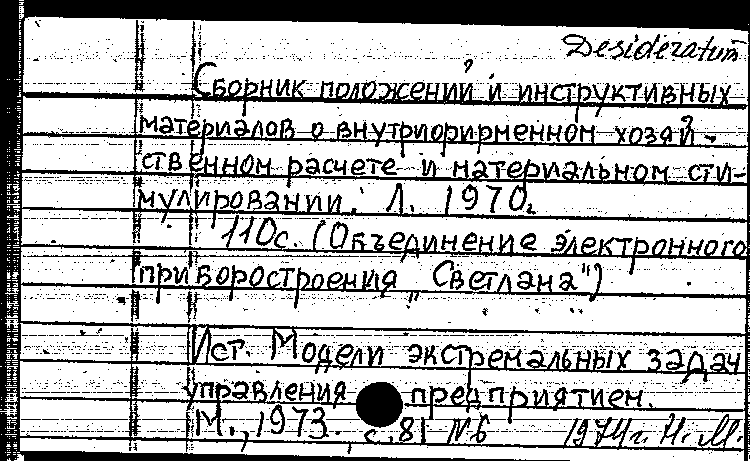 Desideratum
Сборник положений и инструктивных
материалов о внутрифирменном хозяй-
ственном расчете и материальном сти-
мулировании. Л. 1970.
110с. (Объединение электронного
приборостроения "Светлана")
Ист. Модели экстремальных задач
управления предприятием.
М., 1973. с.81 №6 1974г. Н.М.